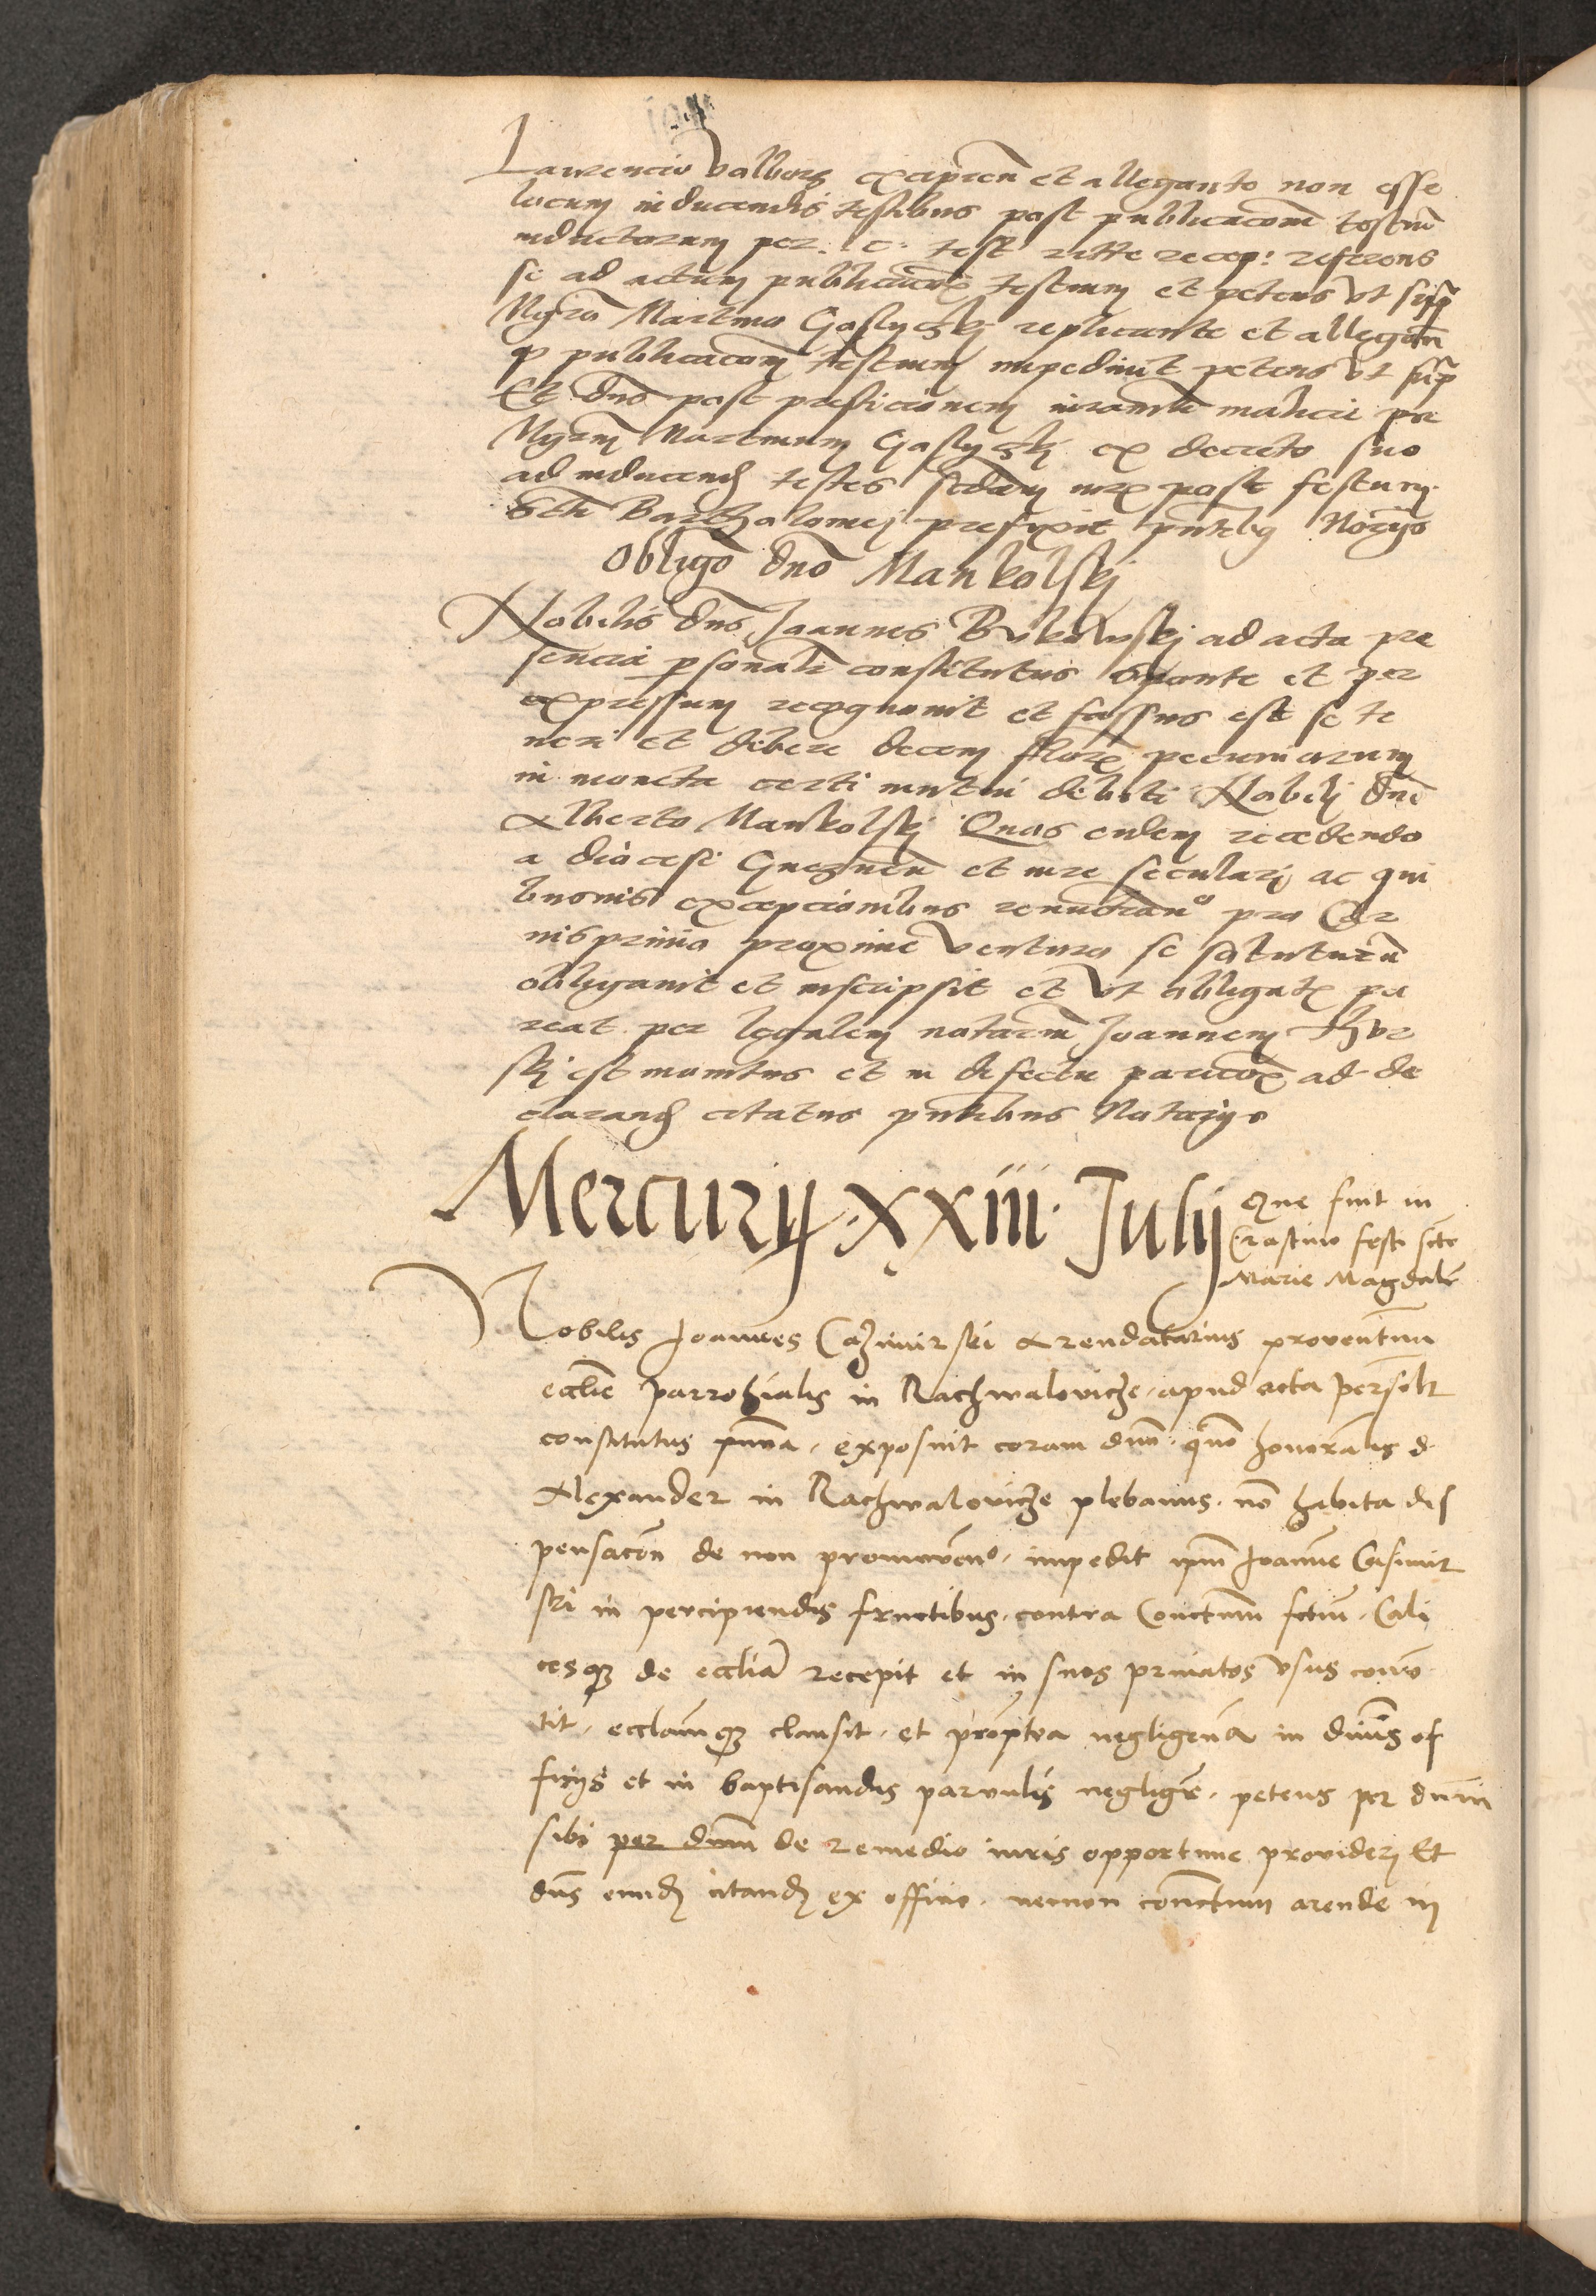 Laurencio Valberg excipien et allegante non esse
locum inducendis testibus post publicacom testium
inductorum per. c. test ritte recep: referens
se ad actum publicacois testium et petens vt supra
Mgro Martino Goslyczskj replicante et allegan
publicacom testium impedivit petens vt supra
Et dns post prestacionem iurament malicie per
Mgrm Martinum Goslyczskj ex decreto suo
ad inducend testes sedam iurx post festum
Scti Bartholomej prefixit pntibq Notrys
Obligo dno Mankolskj
Nobilis dns Joannes Bukowskj ad acta pre
sencia psonalr constitutus sponte et per
expressum recognouit et fassus est se te
neri et debere decem florx pecuniarum
in moneta certi mutui debiti Nobilj dno
Alberto Mankolskj Quos eidem recedendo
a diocesi Gneznen et iure seculari ac qui
busuis excepcionibus renuncian° pro Car
nispriuio proxime venturo se soluturu
obligauit et inscripsit et vt obligatx pa
reat per legalem notarm Joannem
skj est monitus et in defectu paricox ad de
clarand citatus pntibus Notarijs
Mercurij .XXIII. Julij Que fuit in
Crastino festi scte
Marie Magdale
Nobilis Joannes Cazimirski Arendatarius proventuum
ecclie parrohialis in Rachwalovicze, apud acta personlr
constitutus pnna, exposuit coram dno quo honorabilis d
Alexander in Rachwalovicze plebanus. no habita dis
pensacon de non promoven°. impedit ipm Joanne Casimir
ski in percipiendis fructibus, contra Conctum fctum, Cali
cesqz de ecclia recepit et in suos priuatos vsus conuer
tit, eccliamqz clausit. et propterea negligencia in diuinis of
ficys et in baptisandis paruulis negligitur. petens per dnm
sibi per dnm de remedio iuris opportune prouiderj Et
dns eund citand ex officio. necnon conctum arende in